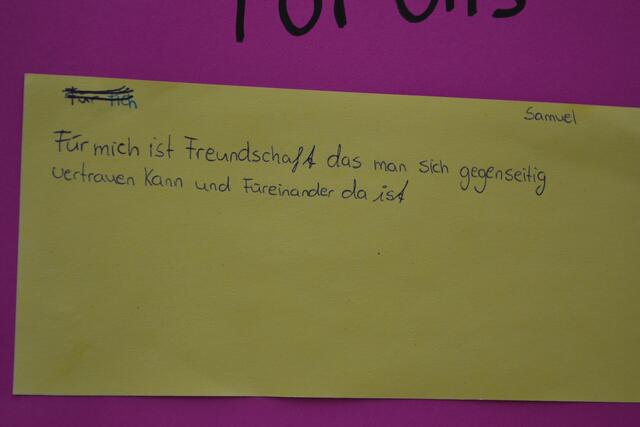 für uns
Samuel
Für mich ist Freundschaft das man sich gegenseitig
vertrauen Kann und Füreinander da ist